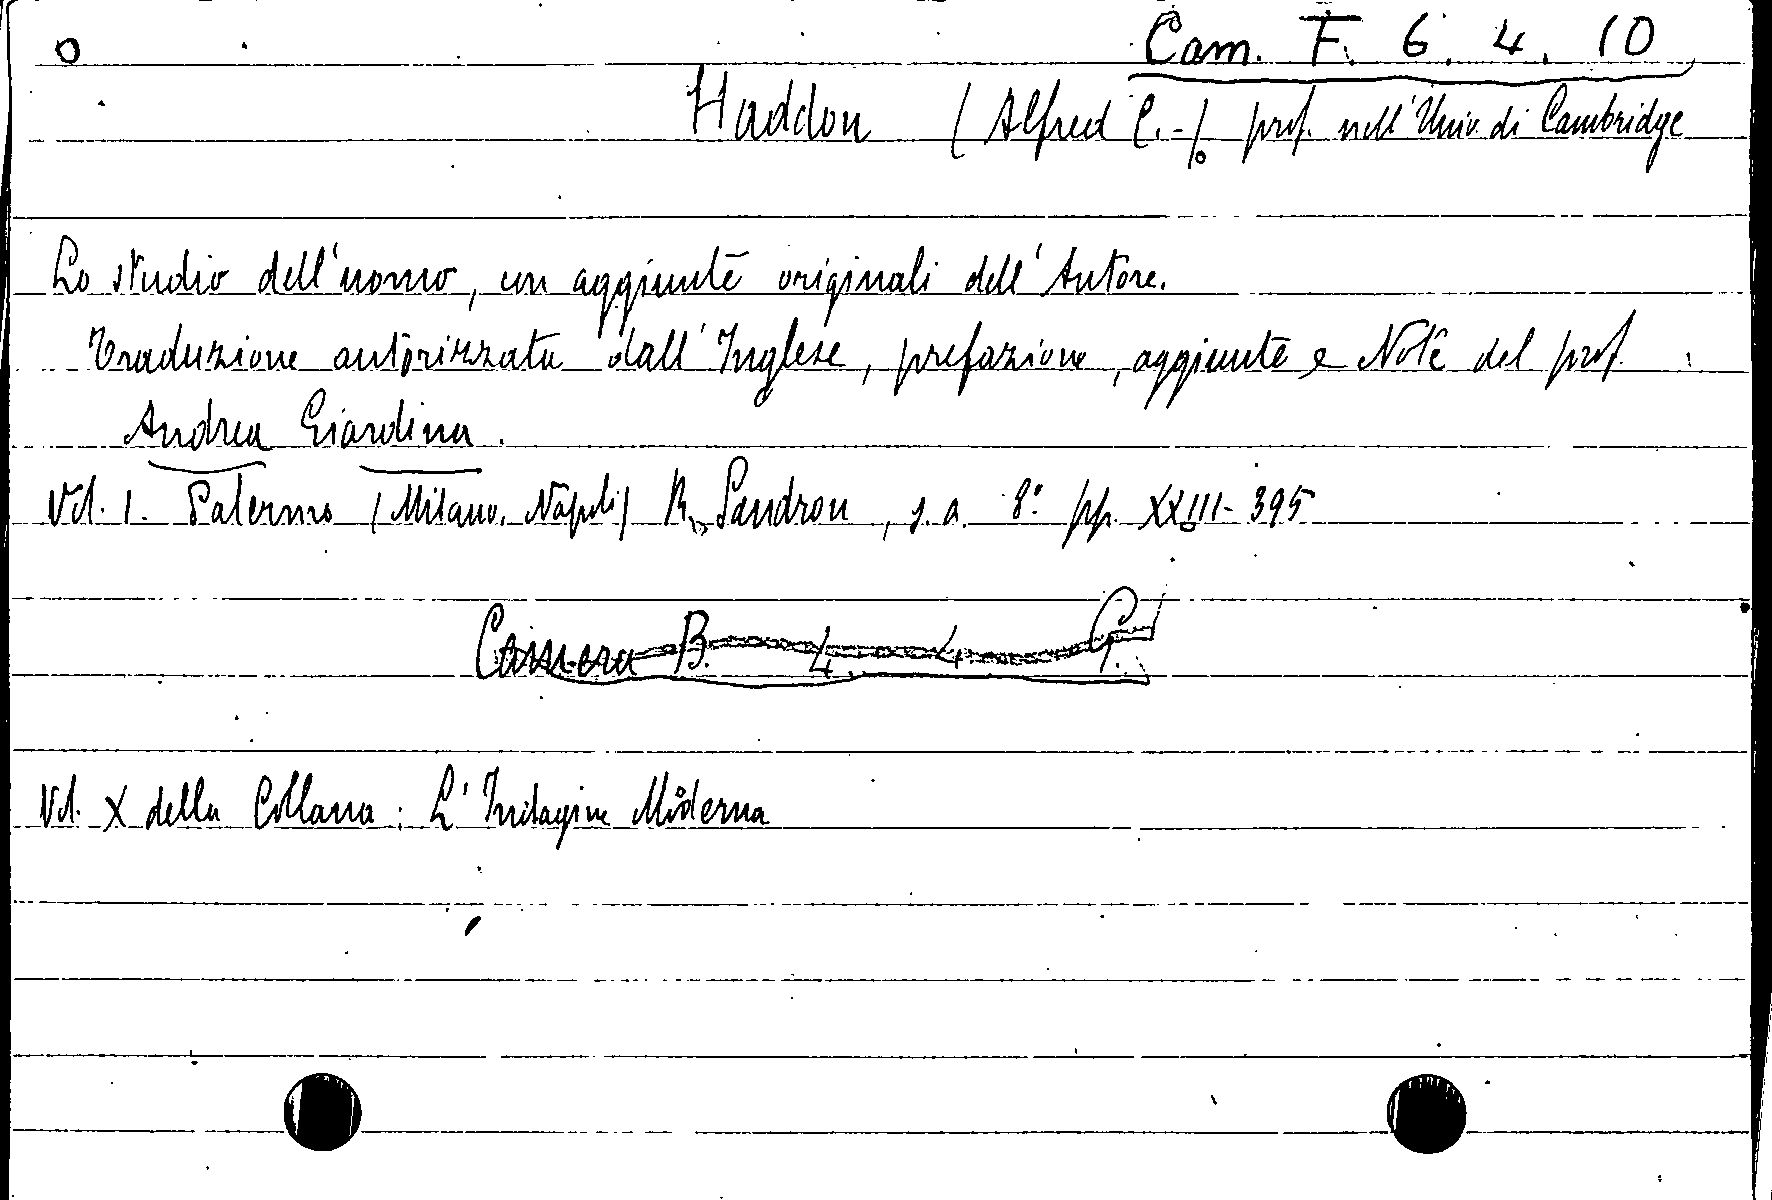 Cam. F. 6. 4. 10
Haddon (Alfred C.-). prof. nell'Univ. di Cambridge
Lo studio dell'uomo, con aggiunte originali dell'Autore.
Traduzione autorizzata dall'Inglese, prefazione, aggiunte e Note del prof.
Andrea Giardina.
Vol. 1. Palermo (Milano, Napoli) R. Sandron, s. a. 8° pp. XXIII-395
Camera B. 4. 4. G.
Vol. X della Collana: L'Indagine Moderna